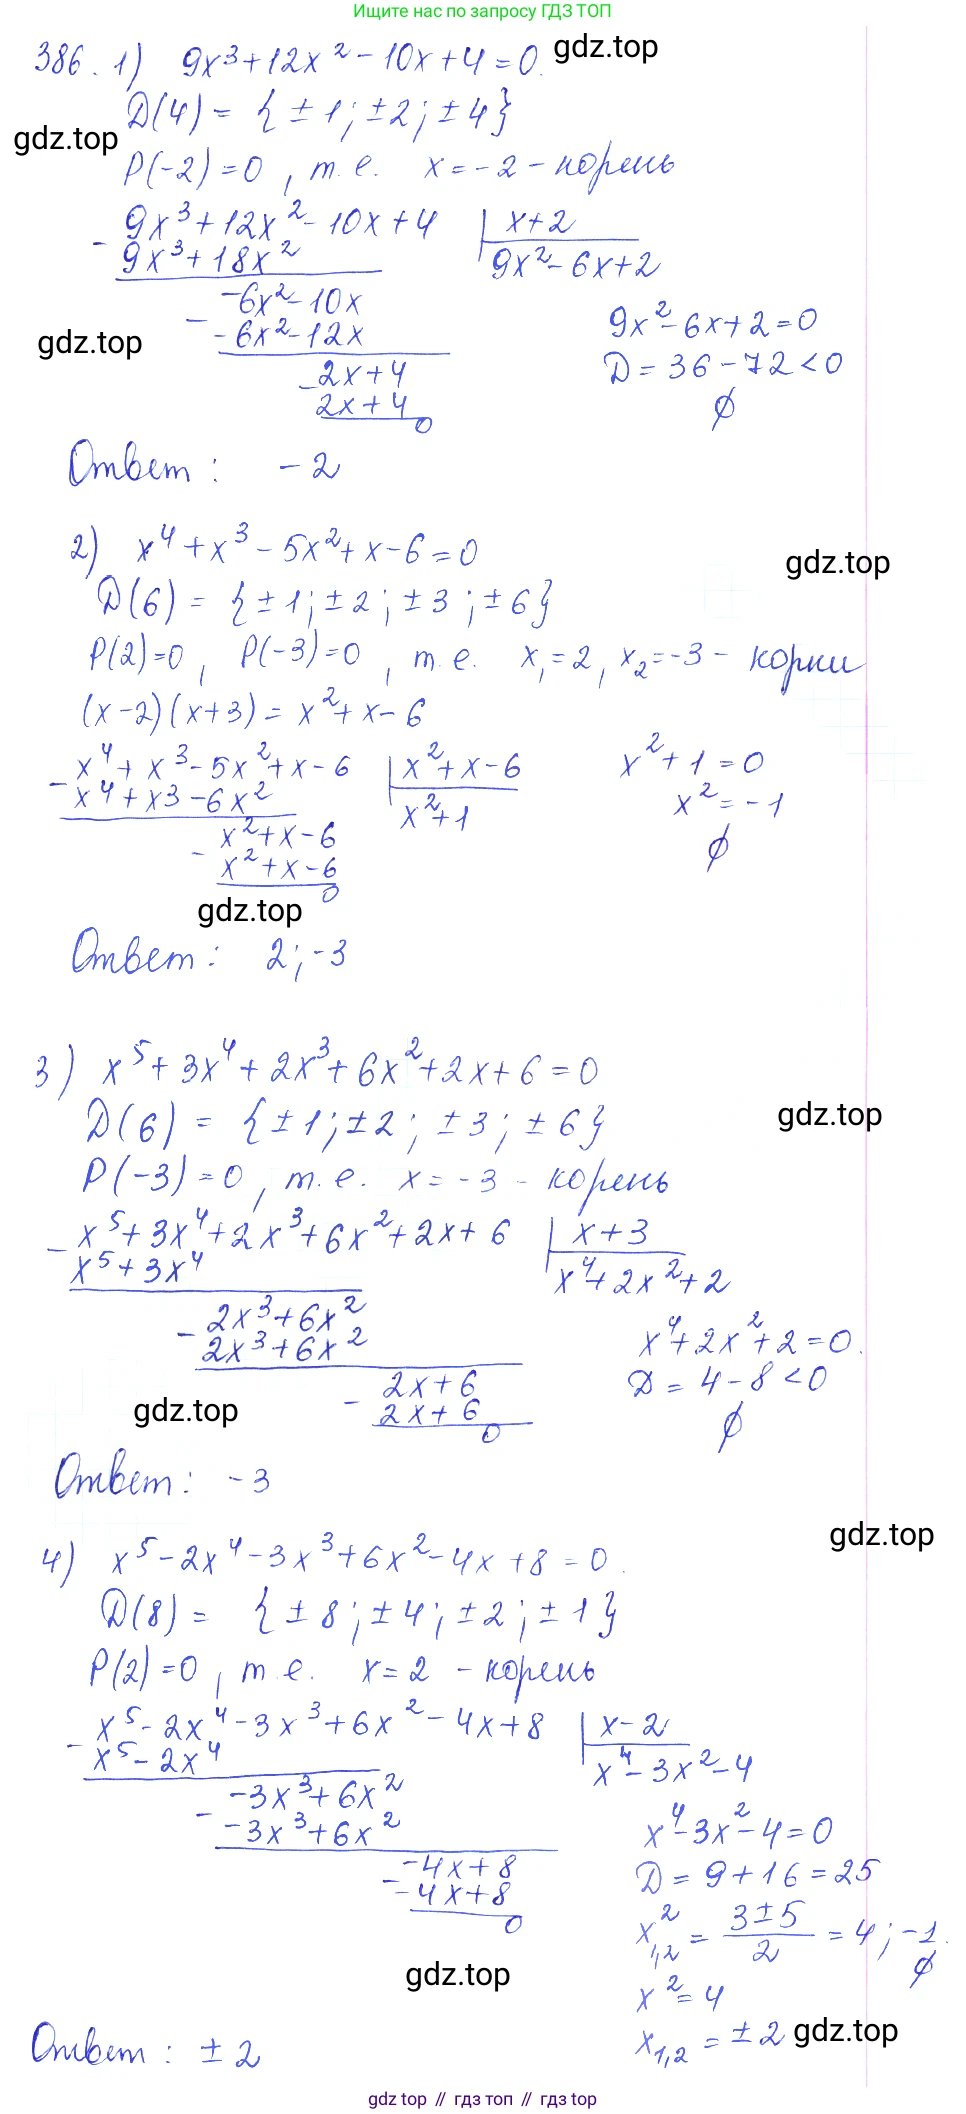 Ищите нас по запросу ГДЗ ТОП
386. 1) 9x³+12x²-10x+4=0.
gdz.top
D(4) = {±1; ±2; ±4}
gdz.top
P(-2)=0, т.е. x=-2 - корень
- 9x³+12x²-10x+4 | x+2
9x³+18x² | 9x²-6x+2
- -6x²-10x
-6x²-12x
gdz.top
- 2x+4
2x+4
0
9x²-6x+2=0
D=36-72<0
∅
Ответ: -2
2) x⁴+x³-5x²+x-6=0
gdz.top
D(6) = {±1; ±2; ±3; ±6}
P(2)=0, P(-3)=0, т.е. x₁=2, x₂=-3 - корни
(x-2)(x+3)=x²+x-6
- x⁴+x³-5x²+x-6 | x²+x-6
x⁴+x³-6x² | x²+1
- x²+x-6
x²+x-6
0
x²+1=0
x²=-1
∅
gdz.top
Ответ: 2; -3
3) x⁵+3x⁴+2x³+6x²+2x+6=0
D(6) = {±1; ±2; ±3; ±6}
gdz.top
P(-3)=0, т.е. x=-3 - корень
- x⁵+3x⁴+2x³+6x²+2x+6 | x+3
x⁵+3x⁴ | x⁴+2x²+2
- 2x³+6x²
2x³+6x²
- 2x+6
2x+6
0
x⁴+2x²+2=0.
D=4-8<0
∅
gdz.top
Ответ: -3
gdz.top
4) x⁵-2x⁴-3x³+6x²-4x+8=0.
D(8) = {±8; ±4; ±2; ±1}
P(2)=0, т.е. x=2 - корень
- x⁵-2x⁴-3x³+6x²-4x+8 | x-2
x⁵-2x⁴ | x⁴-3x²-4
- -3x³+6x²
-3x³+6x²
- -4x+8
-4x+8
0
x⁴-3x²-4=0
D=9+16=25
x²₁,₂ = (3±5)/2 = 4; -1.
∅
x²=4
x₁,₂ = ±2
gdz.top
gdz.top
Ответ: ±2
gdz top // гдз топ // gdz.top